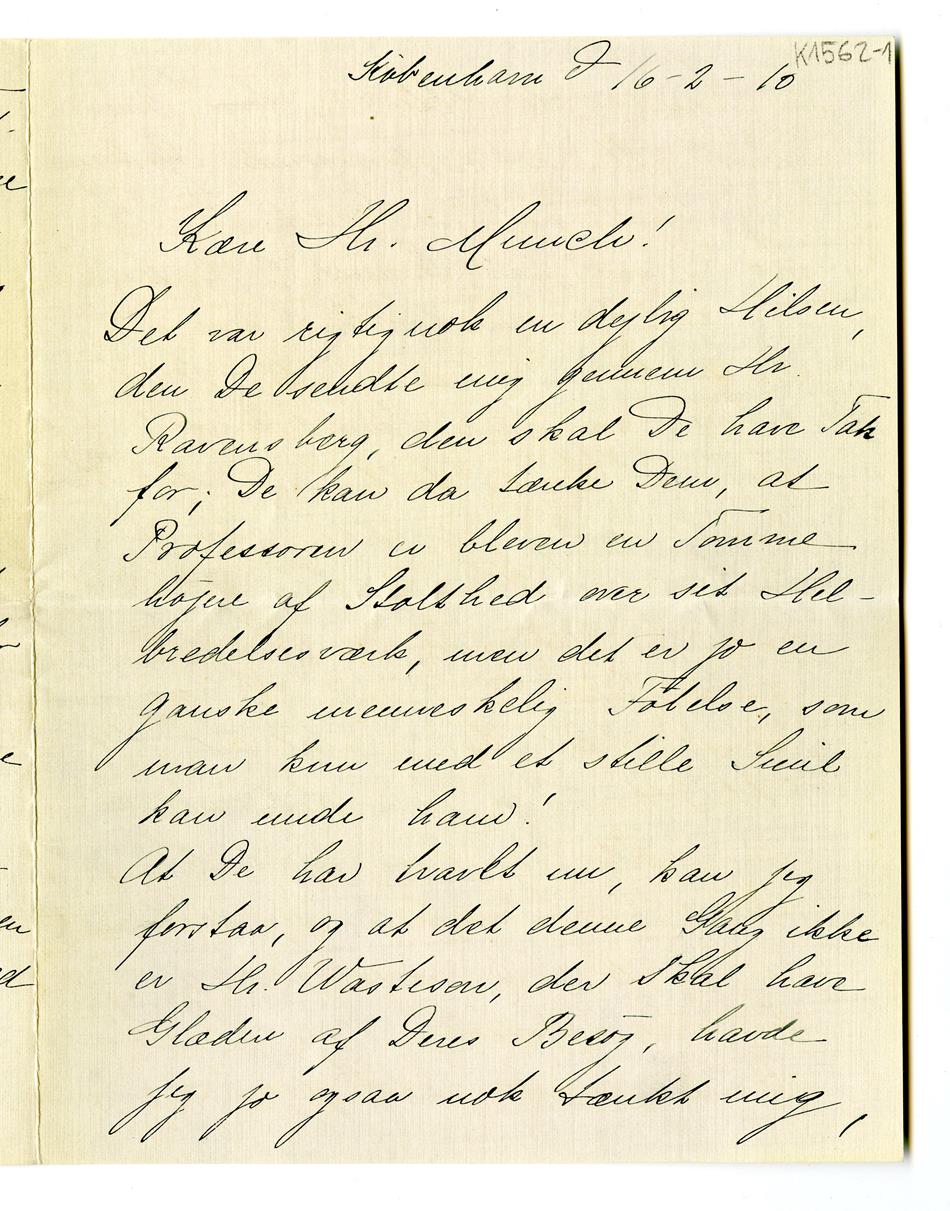 K1562-1
København d 16-2-10
Kære Hr. Munch!
Det var rigtignok en dejlig Hilsen,
den De sendte mig gennem Hr.
Ravensberg, den skal De have Tak
for; De kan da tænke Dem, at
Professoren er bleven en Tomme
højere af Stolthed over sit Hel-
bredelsesværk, men det er jo en
ganske menneskelig Følelse, som
man kun med et stille Smil
kan unde ham!
At De har travlt nu, kan jeg
forstaa, og at det denne Gang ikke
er Hr. Wastison, der skal have
Glæden af Deres Besøg, havde
jeg jo ogsaa nok tænkt mig,